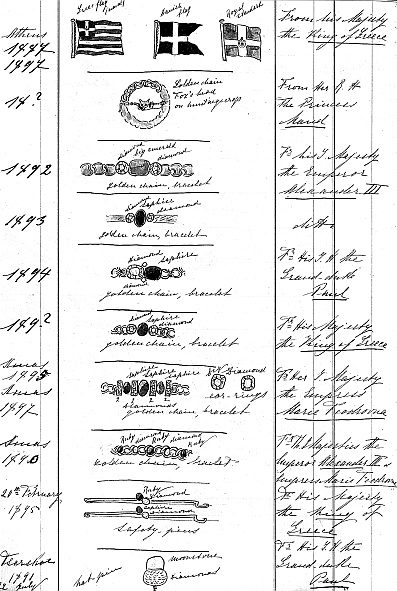 Athens
1887
1897
Danish
flag
Royal
Standard
From his Majesty
the King of Greece
18?
Golden chain
Fox's head
on huntingcrop
From Her R H
The Princess
Maud
1892
diamond big emerald
diamond
golden chain, bracelet
Fr his I Majesty
the Emperor
Alexander III
1893
Saphire
diamond
golden chain, bracelet
ditto
1894
diamond
saphire
golden chain, bracelet
Fr His I H the
Grand duke
Paul
189?
saphire
diamond
golden chain, bracelet
Fr His Majesty
the King of Greece
Xmas
1895
Xmas
1897
saphire
saphire saphire
diamonds
golden chain, bracelet
Diamond
ear-rings
Fr Her I Majesty
the Empress
Marie Feodrovna
Xmas
Ruby diamond Ruby diamond
Ruby
golden chain, bracelet
Emperor Alexander III &
Empress Marie Feodrovna
20th February
1895
Ruby
diamond
saphire
diamond
Safety-pins
Fr His Majesty
the King of
Greece
1891
hat-pin
moonstone
diamonds
Fr His I H the
Grand duke
Paul